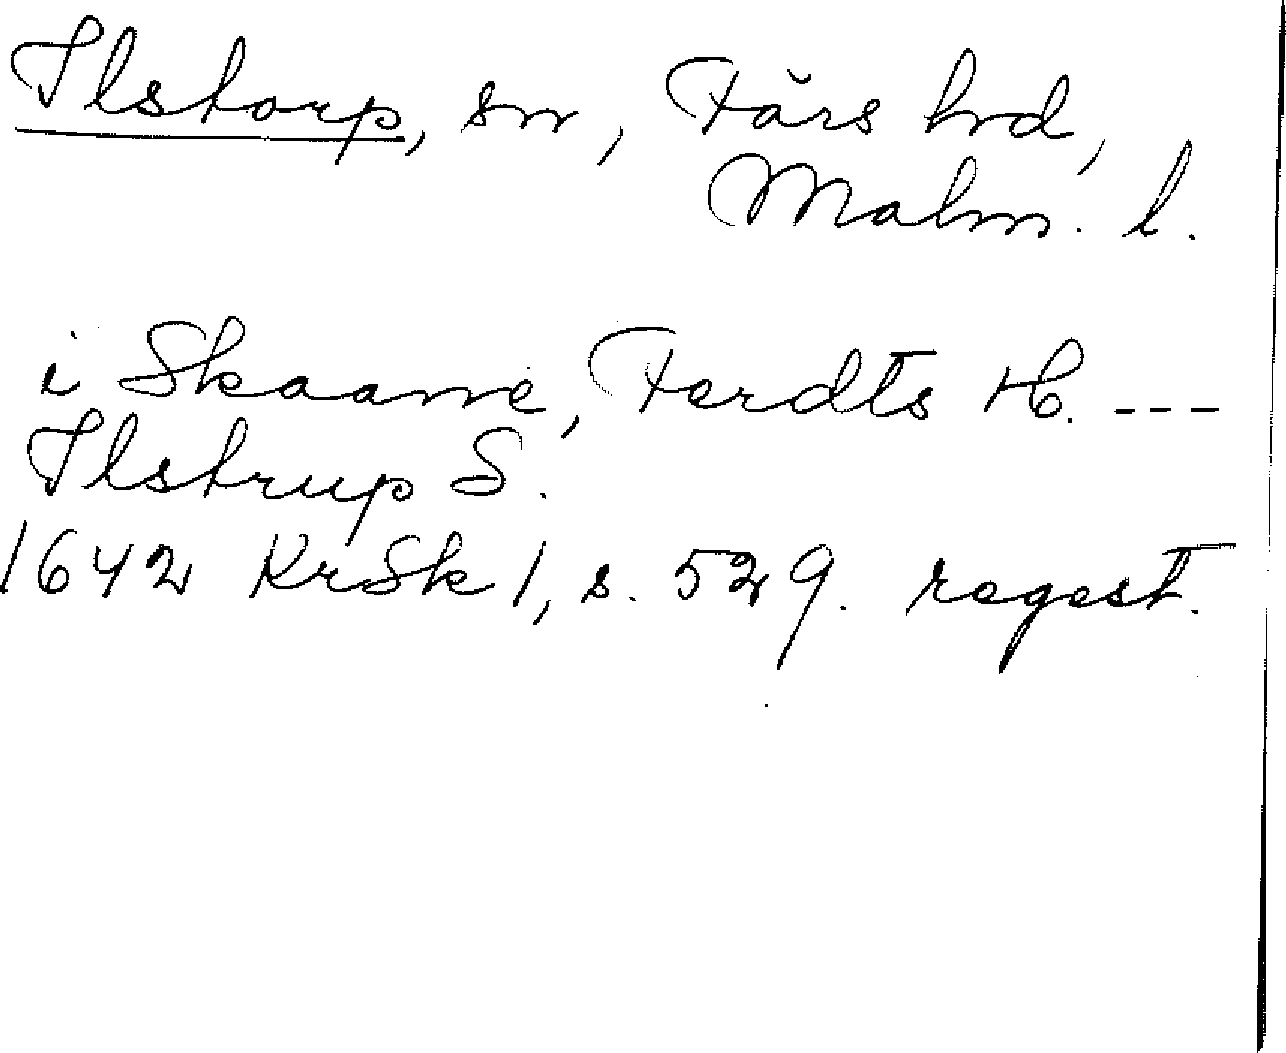 Ilstorp, sn, Färs hrd,
Malm. l.
i Skaane, Ferdts H. ---
Ilstrup S.
1642 KrSk 1, s. 529. regest.